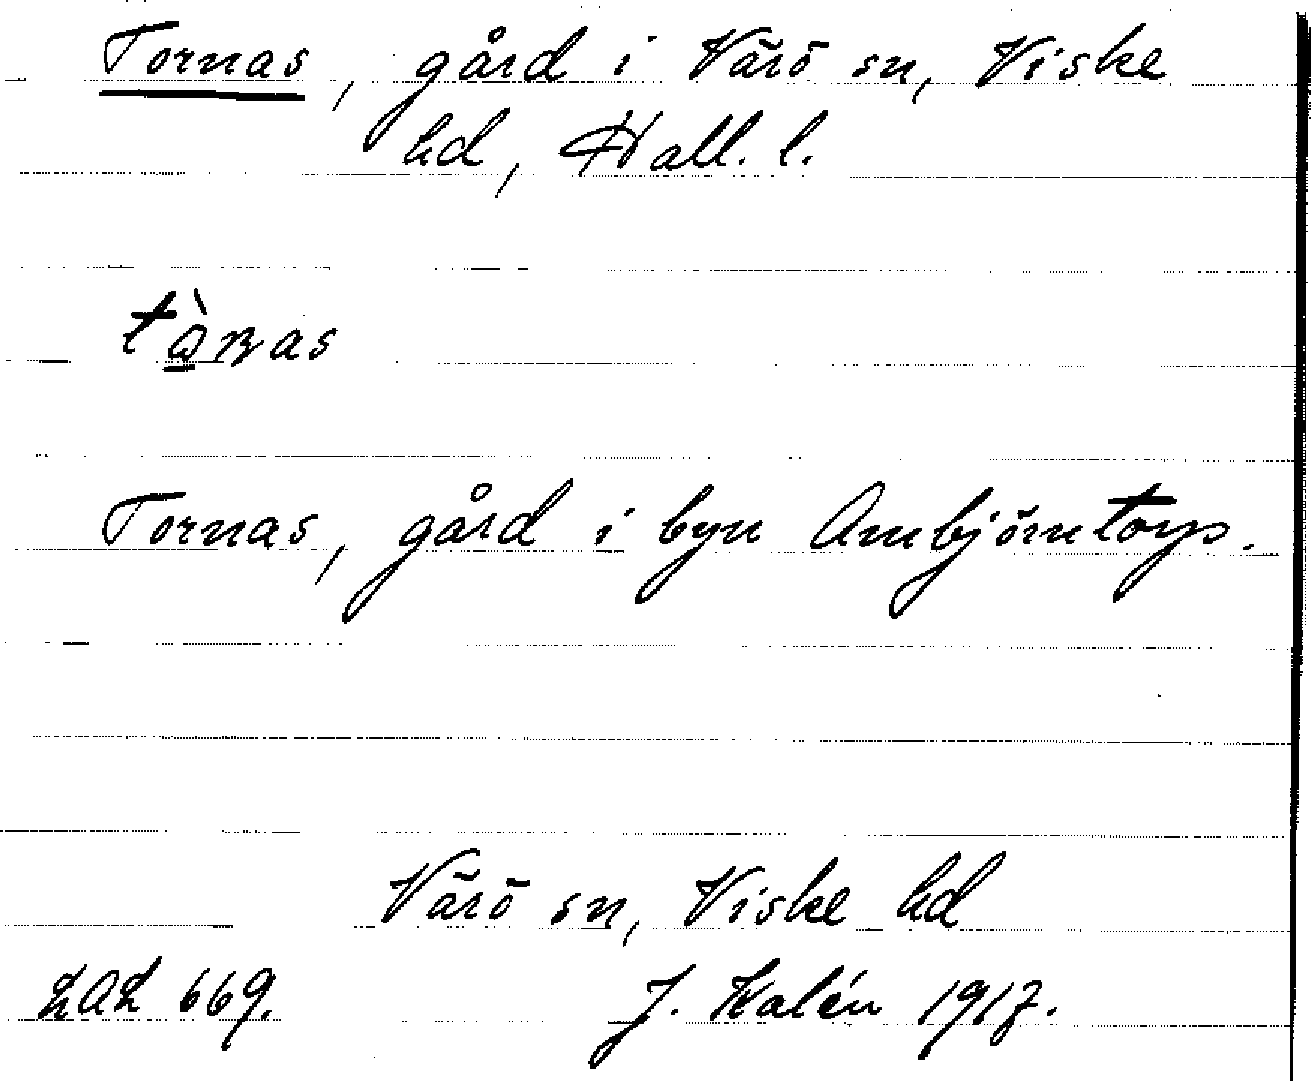 Tornas, gård i Värö sn, Viske
hd, Hall. l.
Tornas, gård i byn Ambjörntorp.
Värö sn, Viske hd
LAL 669. J. Kalén 1917.